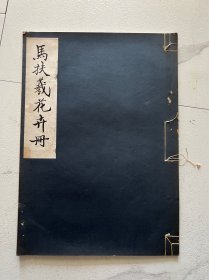 馬扶羲花卉冊